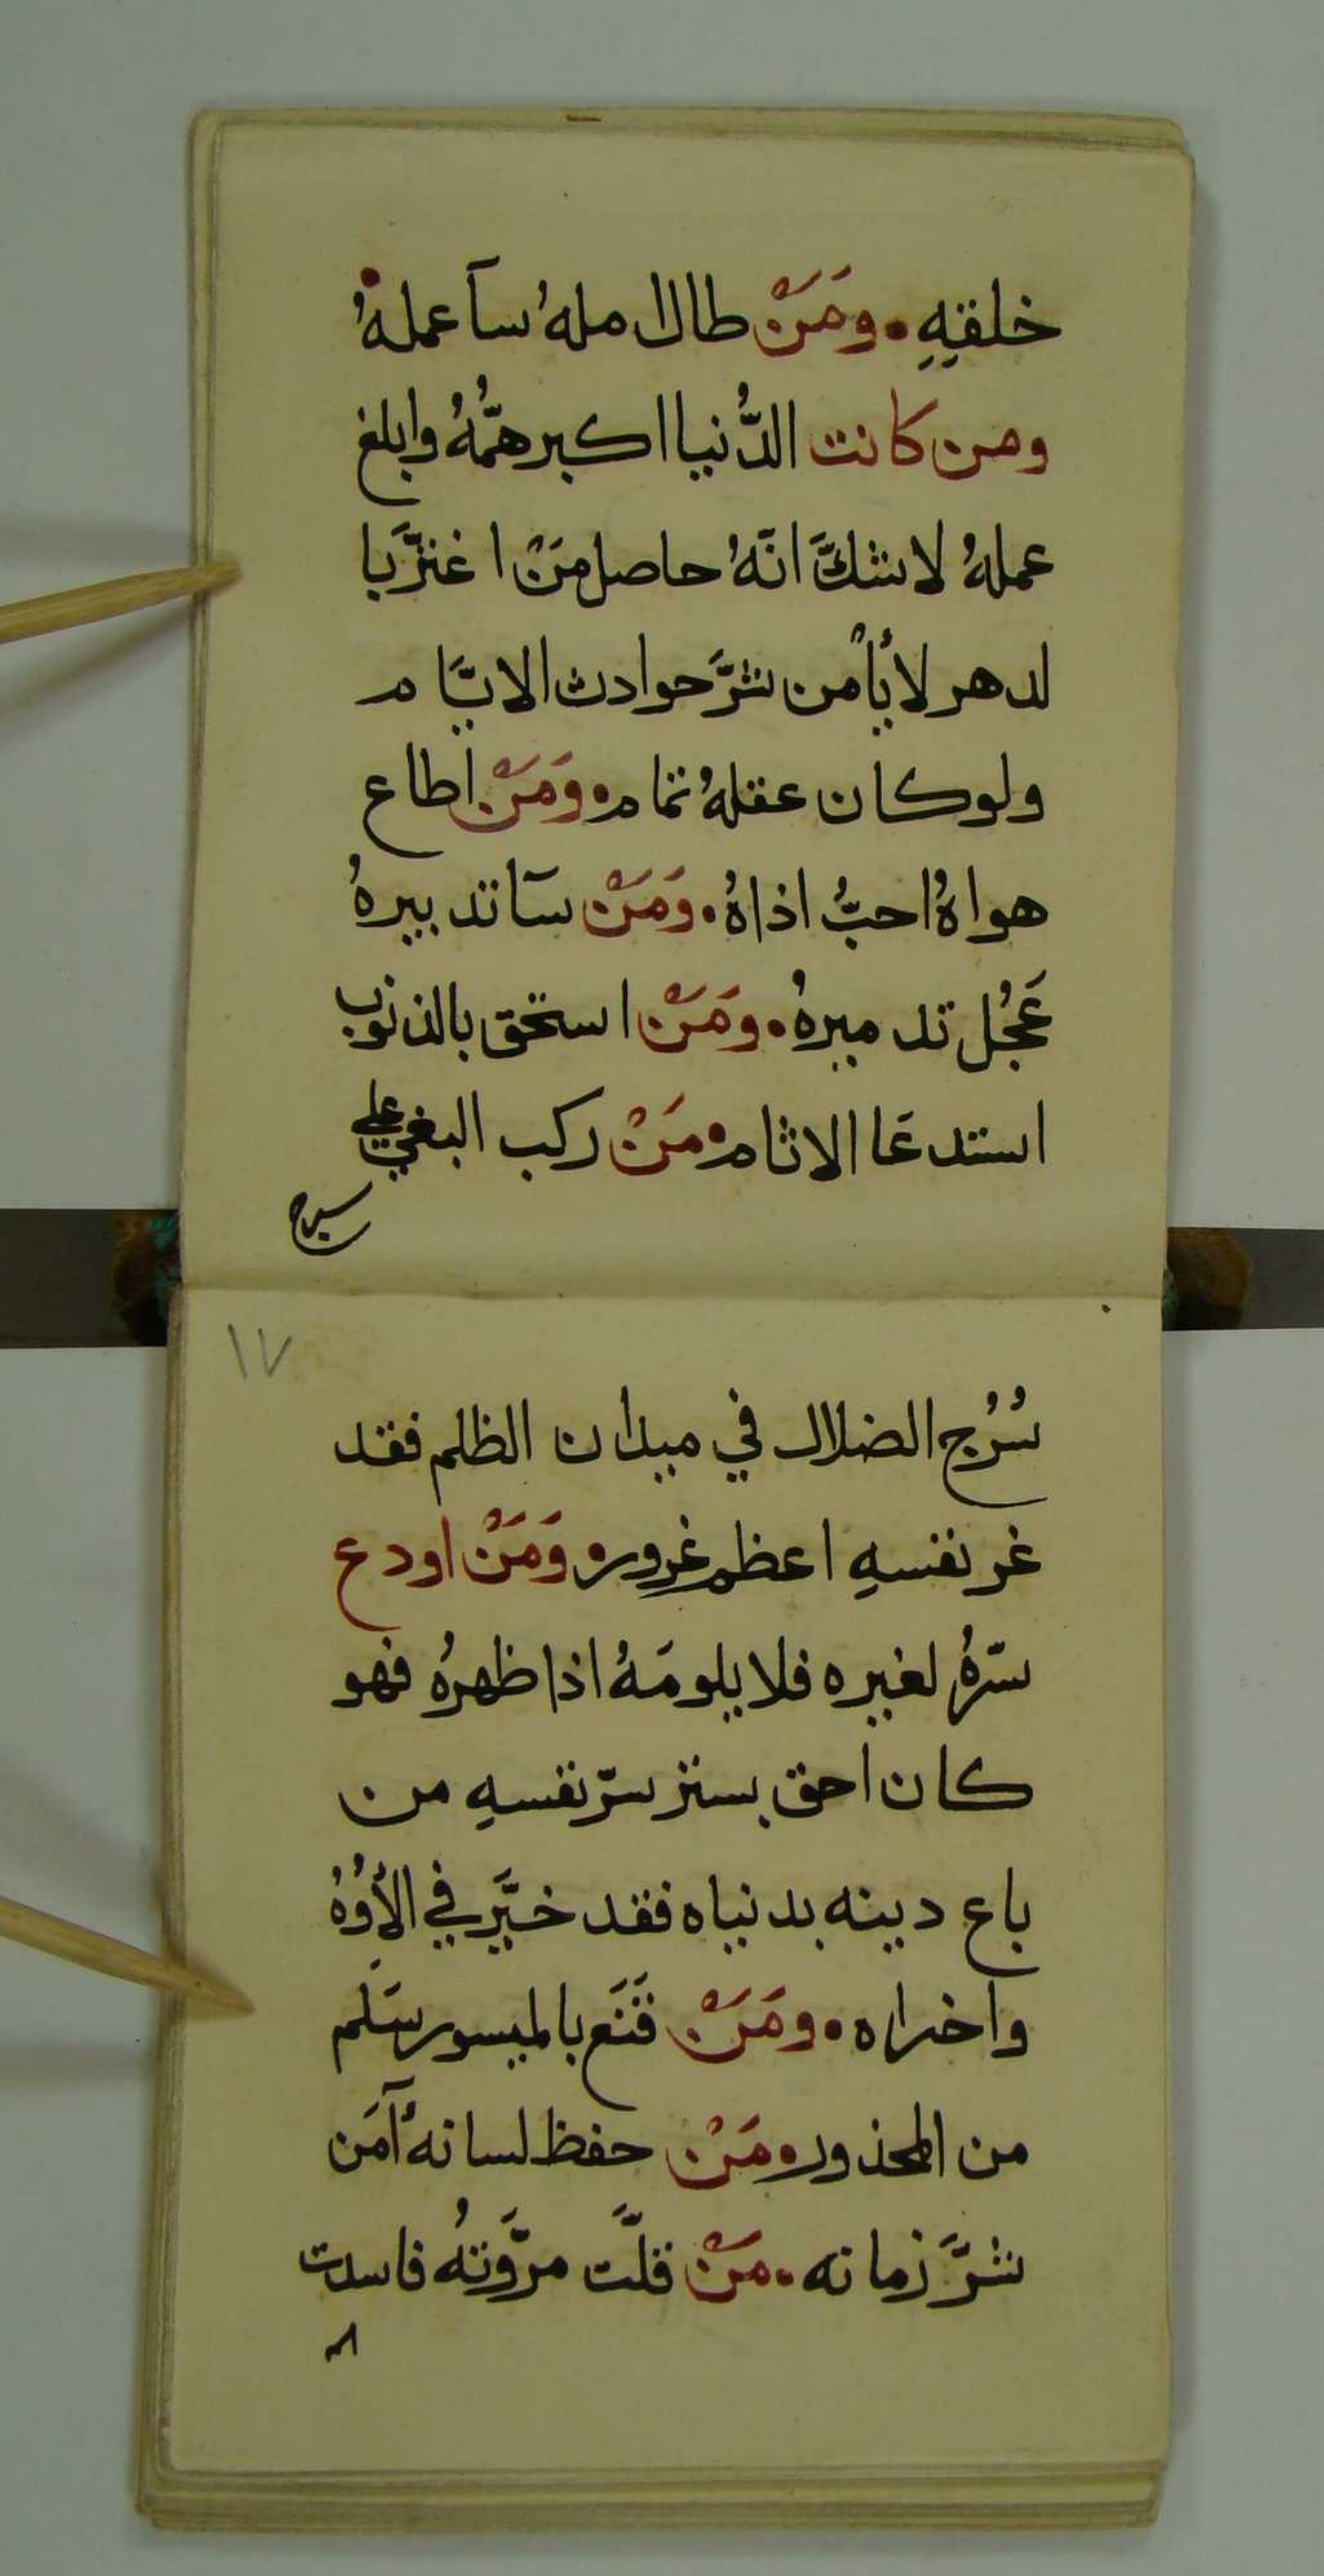 خلقهِ. ومَنْ طال امله ُسآ عملهُ
ومن كانت الدُّنيا اكبر همُّهُ وابلغ
عملهُ لا شكَّ انَّهُ حاصل مَنْ اغترَّ با
لدهر لا يأمن شرَّ حوادث الايَّام
ولو كان عقلهُ تمام. وَمَنْ اطاع
هواهُ احبُّ اذاهُ. وَمَنْ سآ تدبيرهُ
عَجُل تدميرهُ. ومَنْ استحق بالذنوب
استدعَا الاثام. مَنْ ركب البغي علي
سرج
١٧
سُرُج الضلال في ميدان الظلم فقد
غر نفسهِ اعظم غرور. وَمَنْ اودع
سّرهُ لغيره فلا يلومَهُ اذا ظهرهُ فهو
كان احق بستر سرّ نفسهِ من
باع دينه بدنياه فقد خيَّر في
واخراه. ومَنْ قَنَع بالميسور سَلم
من المحذور. مَنْ حفظ لسانه أَمَن
شرَّ زمانه. مَنْ قلَّت مرَّوتهُ فاسدت